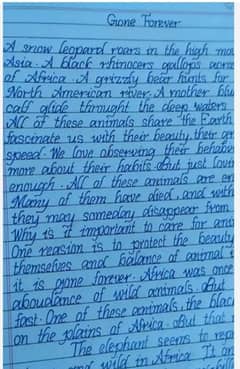 Gone Forever
A snow leopard roars in the high mou
Asia. A black rhinocers gallops acros
of Africa. A grizzly bear hunts for
North American river. A mother blu
calf glide throught the deep waters
All of these animals share the Earth
fascinate us with their beauty, their gr
speed. We love observing their behabio
more about their habits. But just lovin
enough. All of these animals are en
Many of them have died, and with
they may someday disappear from
Why is it important to care for ani
One reasion is to protect the beauty
themselves and balance of animal
it is gone forever. Africa was once
aboundance of wild animals. But
fast. One of these animals, the blac
on the plains of Africa. But that
The elephant seems to rep
wild in Africa. It